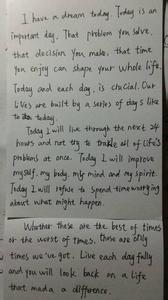 I have a dream today. Today is an
important day. That problem you solve,
that decision you make, that time
you enjoy can shape your whole life.
Today and each day, is crucial. Our
Lives are built by a series of days like
to today.
Today I will live through the next 24
hours and not try to tackle all of life's
problems at once. Today I will improve
myself, my body, my mind and my spirit.
Today I will refuse to spend time worrying
about what might happen.
Whether these are the best of times
or the worst of times. These are only
times we've got. Live each day fully
and you will look back on a life
that made a difference.